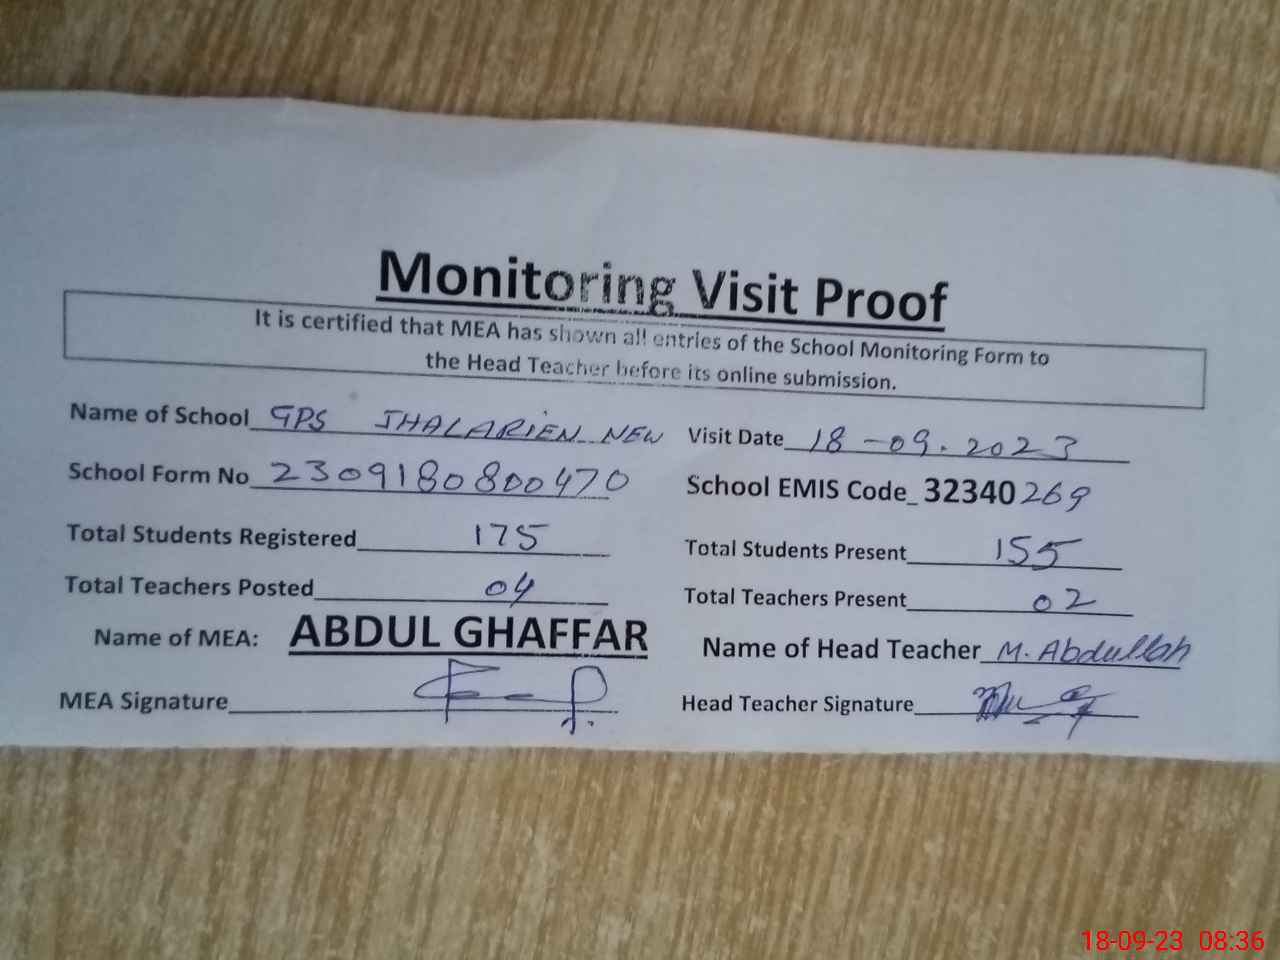 Monitoring Visit Proof
It is certified that MEA has shown all entries of the School Monitoring Form to
the Head Teacher before its online submission.
Name of School GPS JHALARIEN NEW Visit Date 18-09.2023
School Form No 2309180800470 School EMIS Code_ 32340269
Total Students Registered 175 Total Students Present 155
Total Teachers Posted 04 Total Teachers Present 02
Name of MEA: ABDUL GHAFFAR Name of Head Teacher M. Abdullah
MEA Signature Head Teacher Signature
18-09-23 08:36